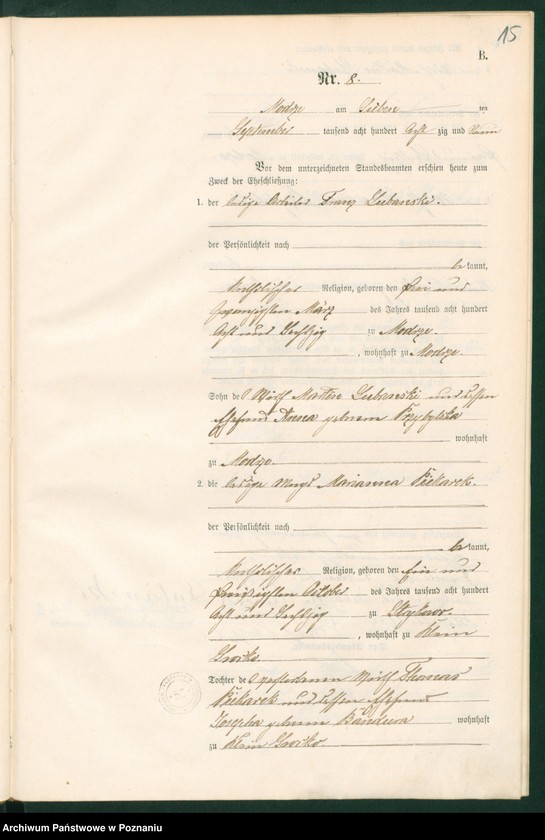 15
B.
Nr. 8.
Modrze am Sieben ten
September tausend acht hundert acht zig und neun
Vor dem unterzeichneten Standesbeamten erschien heute zum
Zweck der Eheschließung:
1. der ledige Arbeiter Franz Lubawski.
der Persönlichkeit nach
be kannt,
katholischer Religion, geboren den drei und
zwanzigsten März des Jahres tausend acht hundert
acht und sechszig zu Modrze.
, wohnhaft zu Modrze.
Sohn des Wirth Martin Lubawski und dessen
Ehefrau Anna geborene Przybylska
wohnhaft
zu Modrze.
2. die ledige Magd Marianna Piekarek.
der Persönlichkeit nach
be kannt,
katholischer Religion, geboren den ein und
zwanzigsten October des Jahres tausend acht hundert
acht und sechszig zu Strykowo
, wohnhaft zu Klein
Tochter des verstorbenen Wirth Thomas
Piekarek und dessen Ehefrau
Josepha geborene wohnhaft
zu Klein
Archiwum Państwowe w Poznaniu